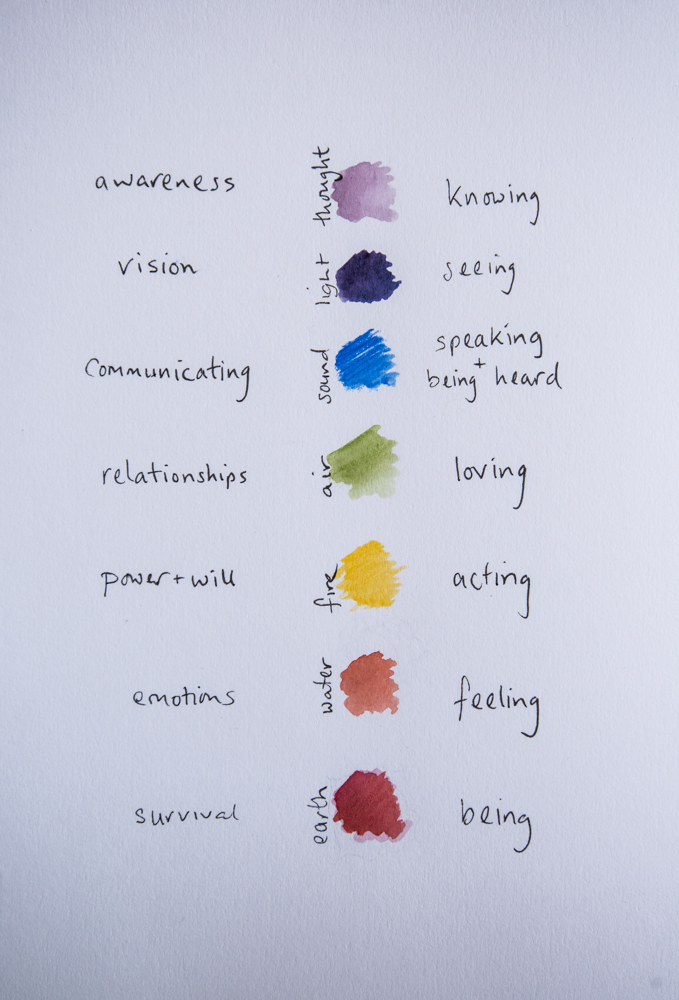 awareness thought knowing
vision light seeing
communicating sound speaking
+
being heard
relationships air loving
power + will fire acting
emotions water feeling
survival earth being